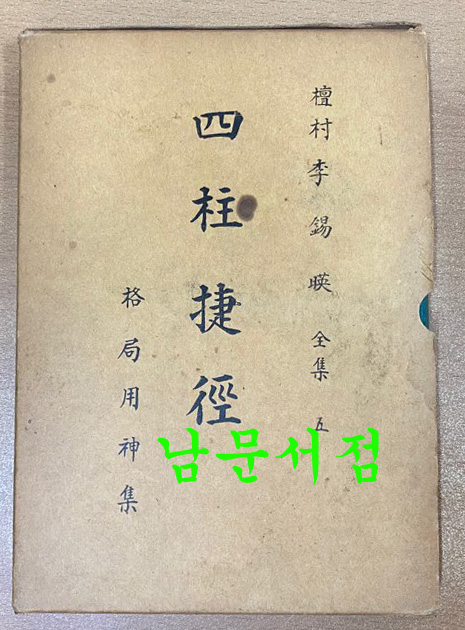 檀村李錫暎全集 五
四柱捷徑
格局用神集
남문서점